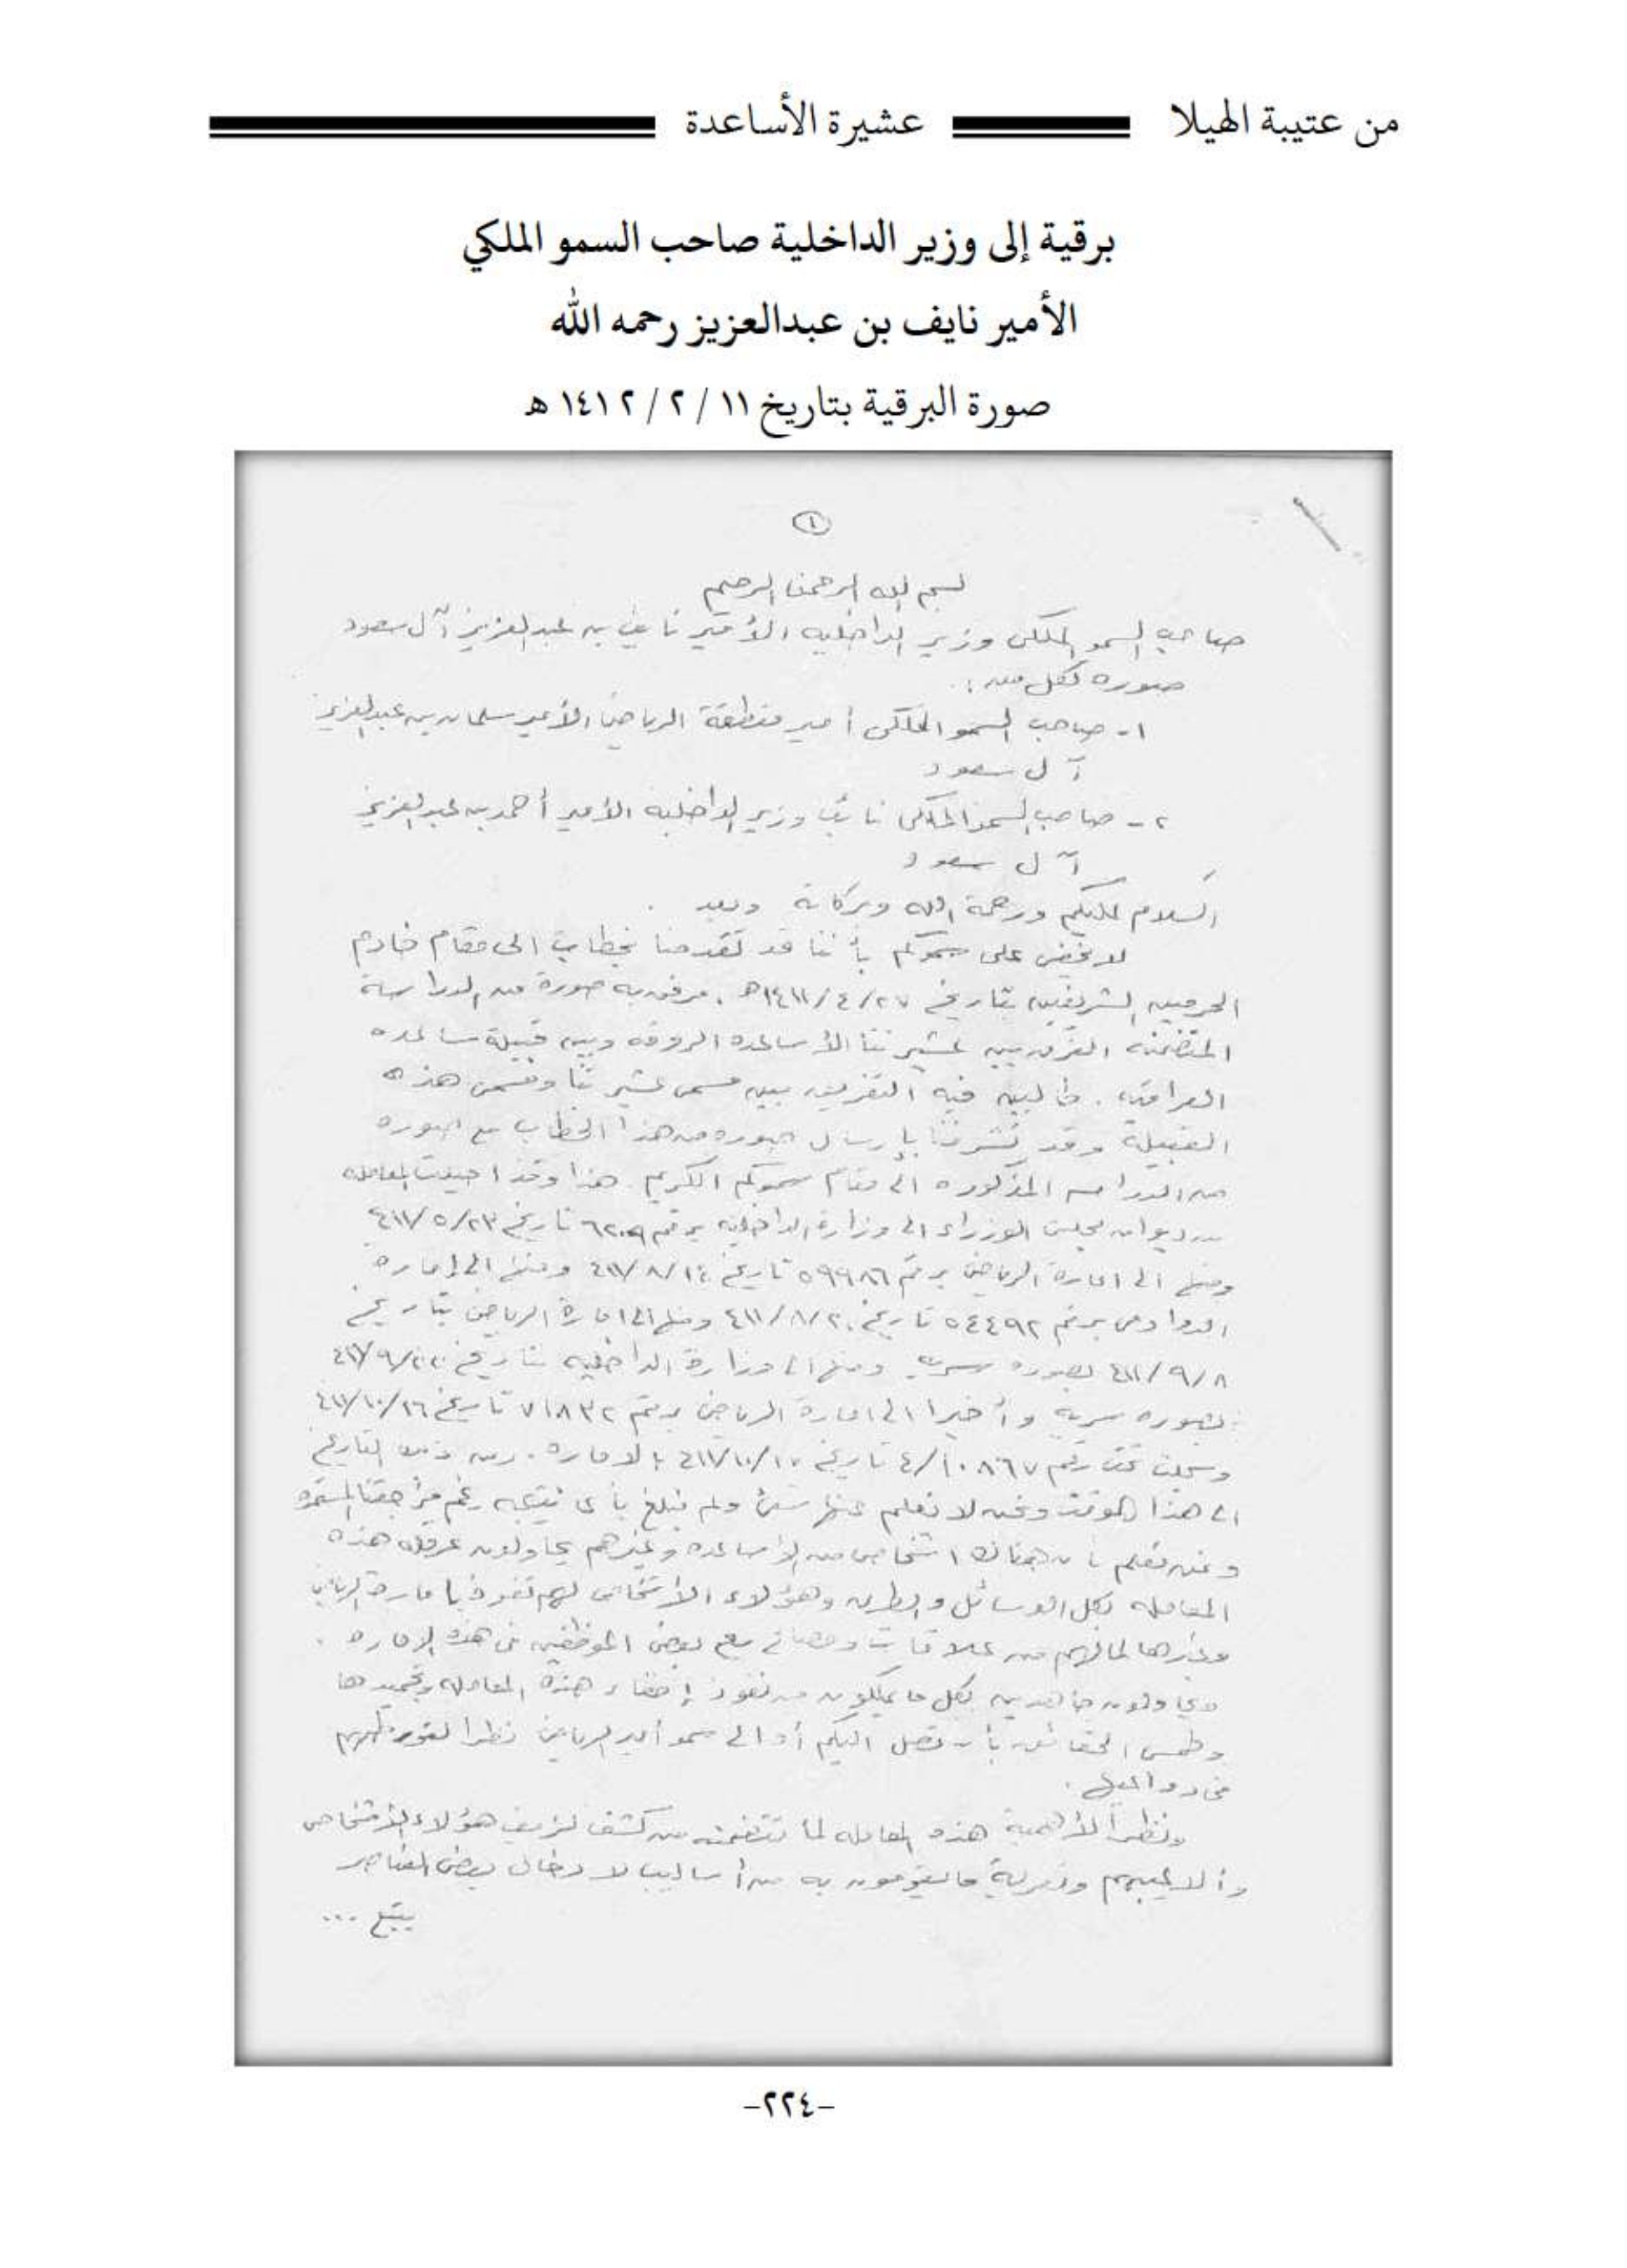 من عتيبة الهيلا عشيرة الأساعدة
برقية إلى وزير الداخلية صاحب السمو الملكي
الأمير نايف بن عبدالعزيز رحمه الله
صورة البرقية بتاريخ ١١ / ٢ / ١٤١٢ هـ
١
بسم الله الرحمن الرحيم
صاحب السمو الملكي وزير الداخليه الأمير نايف بن عبدالعزيز آل سعود
صوره لكل من :
١- صاحب السمو الملكي أمير منطقة الرياض الأمير سلمان بن عبدالعزيز
آل سعود
٢- صاحب السمو الملكي نائب وزير الداخلية الأمير أحمد بن عبدالعزيز
آل سعود
السلام عليكم ورحمة الله وبركاته وبعد .
لا يخفى على سموكم بأننا قد تقدمنا بخطاب الى مقام خادم
الحرمين الشريفين بتاريخ ٢٧/٤/١٤١١هـ . مرفق به صورة من الدراسة
المتضمنه الفرق بين عشيرتنا الأساعده الروقه وبين قبيلة ساعده
العراقيه . طالبين فيه التفريق بين مسمى عشيرتنا ومسمى هذه
القبيلة وقد تشرفنا بإرسال صوره من هذا الخطاب مع صوره
من الدراسه المذكوره الى مقام سموكم الكريم . هذا وقد احيلت المعامله
من ديوان مجلس الوزراء الى وزارة الداخليه برقم ٦٢٠٩ تاريخ ٢٣/٥/٤١١
ومنها الى امارة الرياض برقم ٥٩٩٨٦ تاريخ ١٤/٨/٤١١ ومنها الى إماره
الدوادمي برقم ٥٤٤٩٢ تاريخ ٢٠/٨/٤١١ ومنها الى امارة الرياض بتاريخ
٨/٩/٤١١ بصوره سريه ومنها الى وزارة الداخليه بتاريخ ٢٢/٩/٤١١
بصوره سريه وأخيرا الى امارة الرياض برقم ٧١٨٣٢ تاريخ ١٦/١٠/٤١١
وسجلت تحت رقم ٤/١٠٨٦٧ تاريخ ١٧/١٠/٤١١ بالاماره . ومن ذلك التاريخ
الى هذا الوقت ونحن لا نعلم عنها شئ ولم نبلغ بأى نتيجه رغم مراجعتنا المستمره
ونحن نعلم بان هناك اشخاص من الأساعده وغيرهم يحاولون عرقلة هذه
المعامله بكل الوسائل والطرق وهؤلاء الأشخاص لهم نفوذ بامارة الرياض
وغيرها لما لهم من علاقات مع بعض الموظفين في هذه الاماره .
ويحاولون جاهدين بكل ما يملكون من نفوذ إخفاء هذه المعامله وتجميدها
وطمس الحقائق بأن تصل اليكم أو الى سمو أمير الرياض نظرا
ونظراً لأهمية هذه المعامله لما تتضمنه من كشف لزيف هؤلاء الأشخاص
وألاعيبهم وتعرية ما يقومون به من أساليب لادخال بعض العناصر
يتبع ...
-٢٢٤-